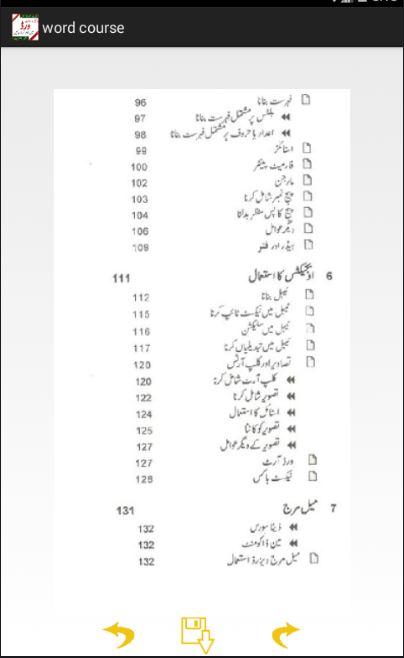 word course
فہرست بنانا 96
بلٹس پر مشتمل فہرست بنانا 97
اعداد یا حروف پر مشتمل فہرست بنانا 98
اسٹائلز 99
فارمیٹ پینٹر 100
مارجن 102
پیج نمبر شامل کرنا 103
پیج کا پس منظر بدلنا 104
دیگر عوامل 106
ہیڈر اور فٹر 109
6 اوبجیکٹس کا استعمال 111
ٹیبل بنانا 112
ٹیبل میں ٹیکسٹ ٹائپ کرنا 115
ٹیبل میں سلیکشن 116
ٹیبل میں تبدیلیاں کرنا 117
تصاویر اور کلپ آرٹس 120
کلپ آرٹ شامل کرنا 120
تصویر شامل کرنا 122
اسٹائل کا استعمال 124
تصویر کو کاٹنا 125
تصویر کے دیگر عوامل 127
ورڈ آرٹ 127
ٹیکسٹ باکس 128
7 میل مرج 131
ڈیٹا سورس 132
مین ڈاکومنٹ 132
میل مرج ویزرڈ استعمال 132